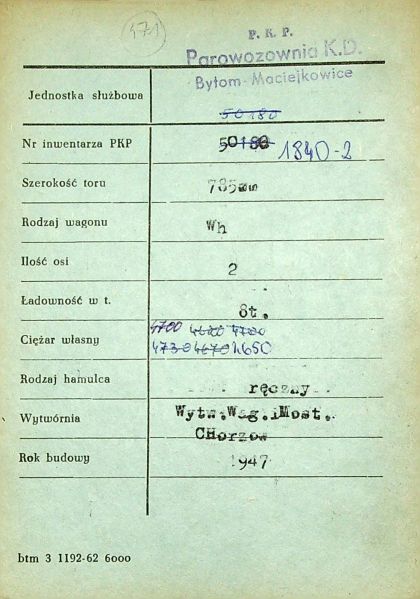 471
P. K. P.
Parowozownia K.D.
Bytom-Maciejkowice
Jednostka służbowa
50180
Nr inwentarza PKP 50180 1840-2
Szerokość toru 785mm
Rodzaj wagonu Wh
Ilość osi 2
Ładowność w t. 8t.
4700 4620 4700
Ciężar własny 4730 4670 4650
Rodzaj hamulca ręczny
Wytwórnia Wytw.Wag.iMost.
CHorzow
Rok budowy 1947
btm 3 1192-62 6000